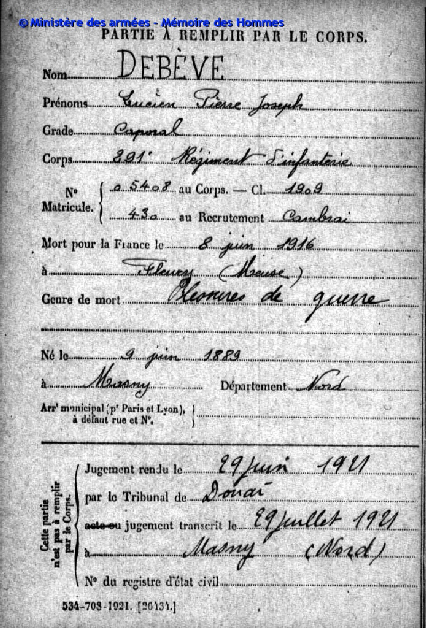 © Ministère des armées - Mémoire des Hommes
PARTIE À REMPLIR PAR LE CORPS.
Nom DEBÈVE
Prénoms Lucien Pierre Joseph
Grade Caporal
Corps 291e Régiment d'infanterie
N° Matricule. { 05408 au Corps. — Cl. 1909
430 au Recrutement Cambrai
Mort pour la France le 8 juin 1916
à Fleury (Meuse)
Genre de mort Blessures de guerre
Né le 9 juin 1889
à Masny Département Nord
Arrt municipal (pr Paris et Lyon),
à défaut rue et N°.
Cette partie n'est pas à remplir par le Corps.
Jugement rendu le 29 juin 1921
par le Tribunal de Douai
acte ou jugement transcrit le 29 juillet 1921
à Masny (Nord)
N° du registre d'état civil
534-708-1921. [26434.]